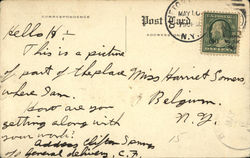 CORRESPONDENCE
Post Card
MAY 10
N.Y.
Hello H -
This is a picture
of part of the place
where I am.
How are you
getting along with
your work?
Address Clifton Springs
General delivery,
Miss Harriet Somers,
Belgium.
N.Y.